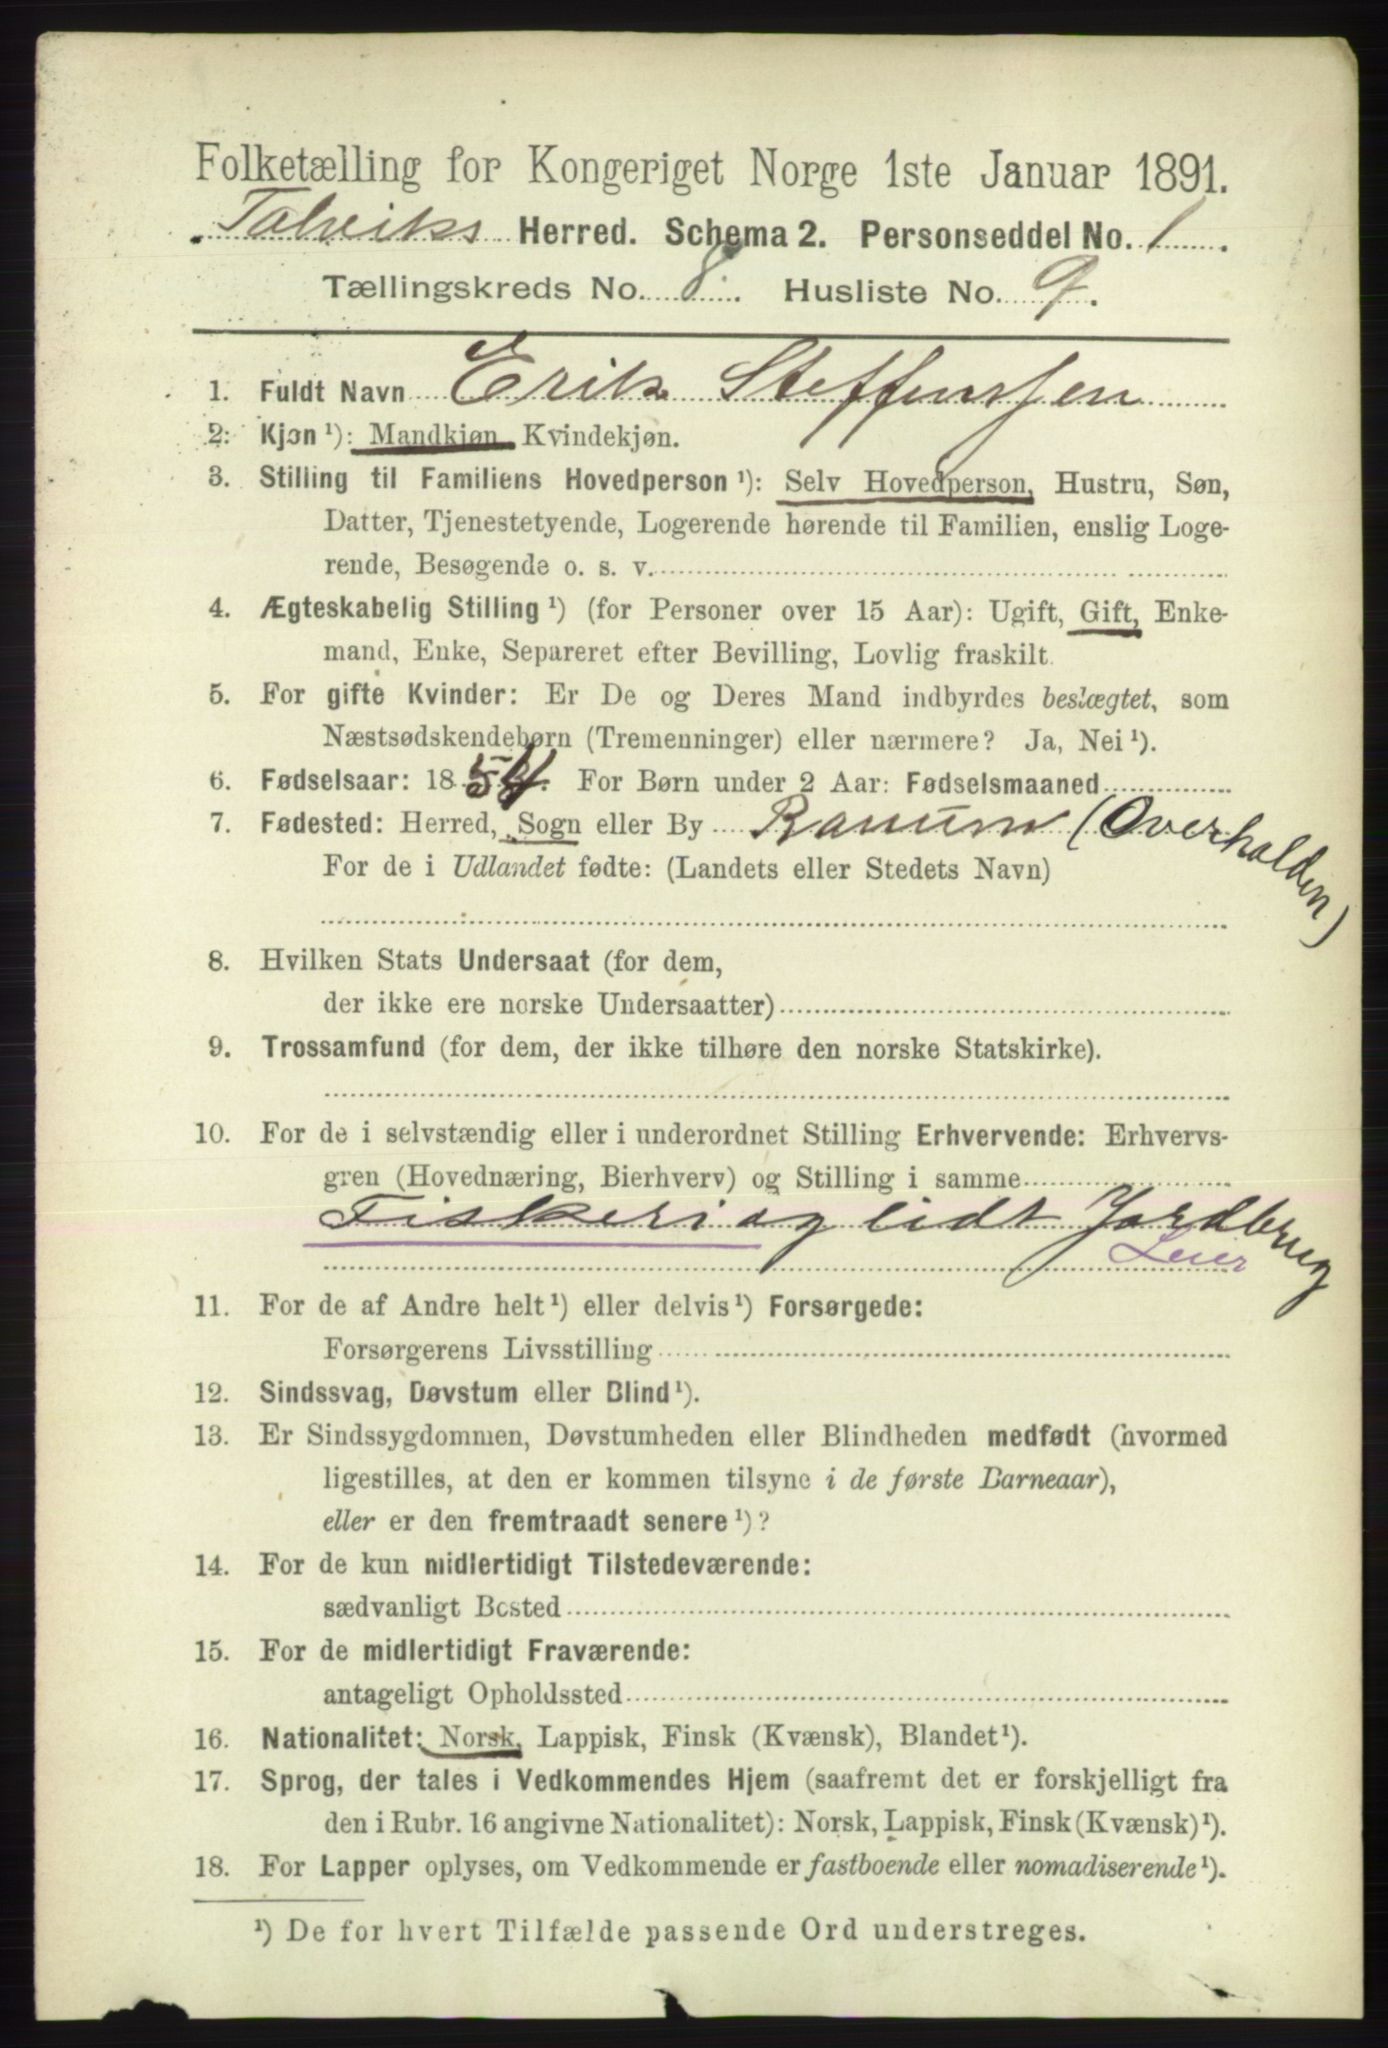 Folketælling for Kongeriget Norge 1ste Januar 1891.
Talviks Herred. Schema 2. Personseddel No. 1.
Tællingskreds No. 8. Husliste No. 9.
1. Fuldt Navn Erik Steffenssen
2. Kjøn ¹): Mandkjøn, Kvindekjøn.
3. Stilling til Familiens Hovedperson ¹): Selv Hovedperson, Hustru, Søn,
Datter, Tjenestetyende, Logerende hørende til Familien, enslig Loge-
rende, Besøgende o. s. v.
4. Ægteskabelig Stilling ¹) (for Personer over 15 Aar): Ugift, Gift, Enke-
mand, Enke, Separeret efter Bevilling, Lovlig fraskilt.
5. For gifte Kvinder: Er De og Deres Mand indbyrdes beslægtet, som
Næstsødskendebørn (Tremenninger) eller nærmere? Ja, Nei ¹).
6. Fødselsaar: 1854. For Børn under 2 Aar: Fødselsmaaned
7. Fødested: Herred, Sogn eller By Ranum (Overhalden)
For de i Udlandet fødte: (Landets eller Stedets Navn)
8. Hvilken Stats Undersaat (for dem,
der ikke ere norske Undersaatter)
9. Trossamfund (for dem, der ikke tilhøre den norske Statskirke).
10. For de i selvstændig eller i underordnet Stilling Erhvervende: Erhvervs-
gren (Hovednæring, Bierhverv) og Stilling i samme
Fiskeri og lidt Jordbrug
Leier
11. For de af Andre helt ¹) eller delvis ¹) Forsørgede:
Forsørgerens Livsstilling
12. Sindssvag, Døvstum eller Blind ¹).
13. Er Sindssygdommen, Døvstumheden eller Blindheden medfødt (hvormed
ligestilles, at den er kommen tilsyne i de første Barneaar),
eller er den fremtraadt senere ¹)?
14. For de kun midlertidigt Tilstedeværende:
sædvanligt Bosted
15. For de midlertidigt Fraværende:
antageligt Opholdssted
16. Nationalitet: Norsk, Lappisk, Finsk (Kvænsk), Blandet ¹).
17. Sprog, der tales i Vedkommendes Hjem (saafremt det er forskjelligt fra
den i Rubr. 16 angivne Nationalitet): Norsk, Lappisk, Finsk (Kvænsk) ¹).
18. For Lapper oplyses, om Vedkommende er fastboende eller nomadiserende ¹).
¹) De for hvert Tilfælde passende Ord understreges.